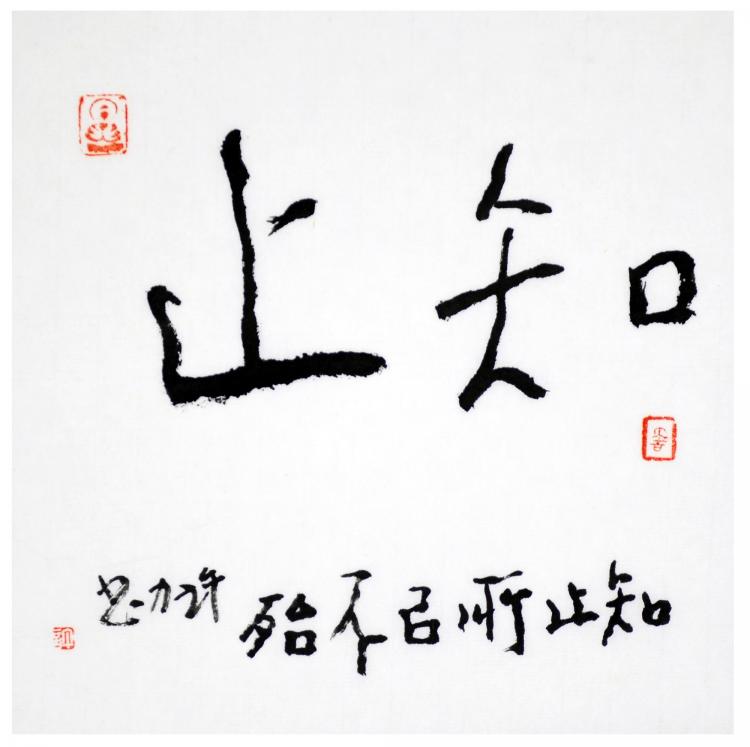 知止
知止所㠯不殆 许力书